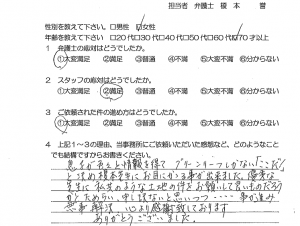 担当者 弁護士 榎本 誉
性別を教えて下さい。□男性 ☑女性
年齢を教えて下さい □20代□30代□40代□50代□60代☑70才以上
1 弁護士の応対はどうでしたか。
①大変満足 ②満足 ③普通 ④不満 ⑤大変不満 ⑥分からない
2 スタッフの応対はどうでしたか。
①大変満足 ②満足 ③普通 ④不満 ⑤大変不満 ⑥分からない
3 ご依頼された件の進め方はどうでしたか。
①大変満足 ②満足 ③普通 ④不満 ⑤大変不満 ⑥分からない
4 上記1～3の理由、当事務所にご依頼いただいた感想など、どのようなこと
でも結構ですからお書きください。
息子が色々と情報を得て グリーンリーフしかない「ここだ」
と決め榎本先生にお目にかかる事が出来ました。優秀な
先生に私共のような土地の件をお願いして良いものだろう
かとためらい、申し訳ないと思いつつ・・・・事が進み
無事解決 心より感謝致しております
ありがとうございました。